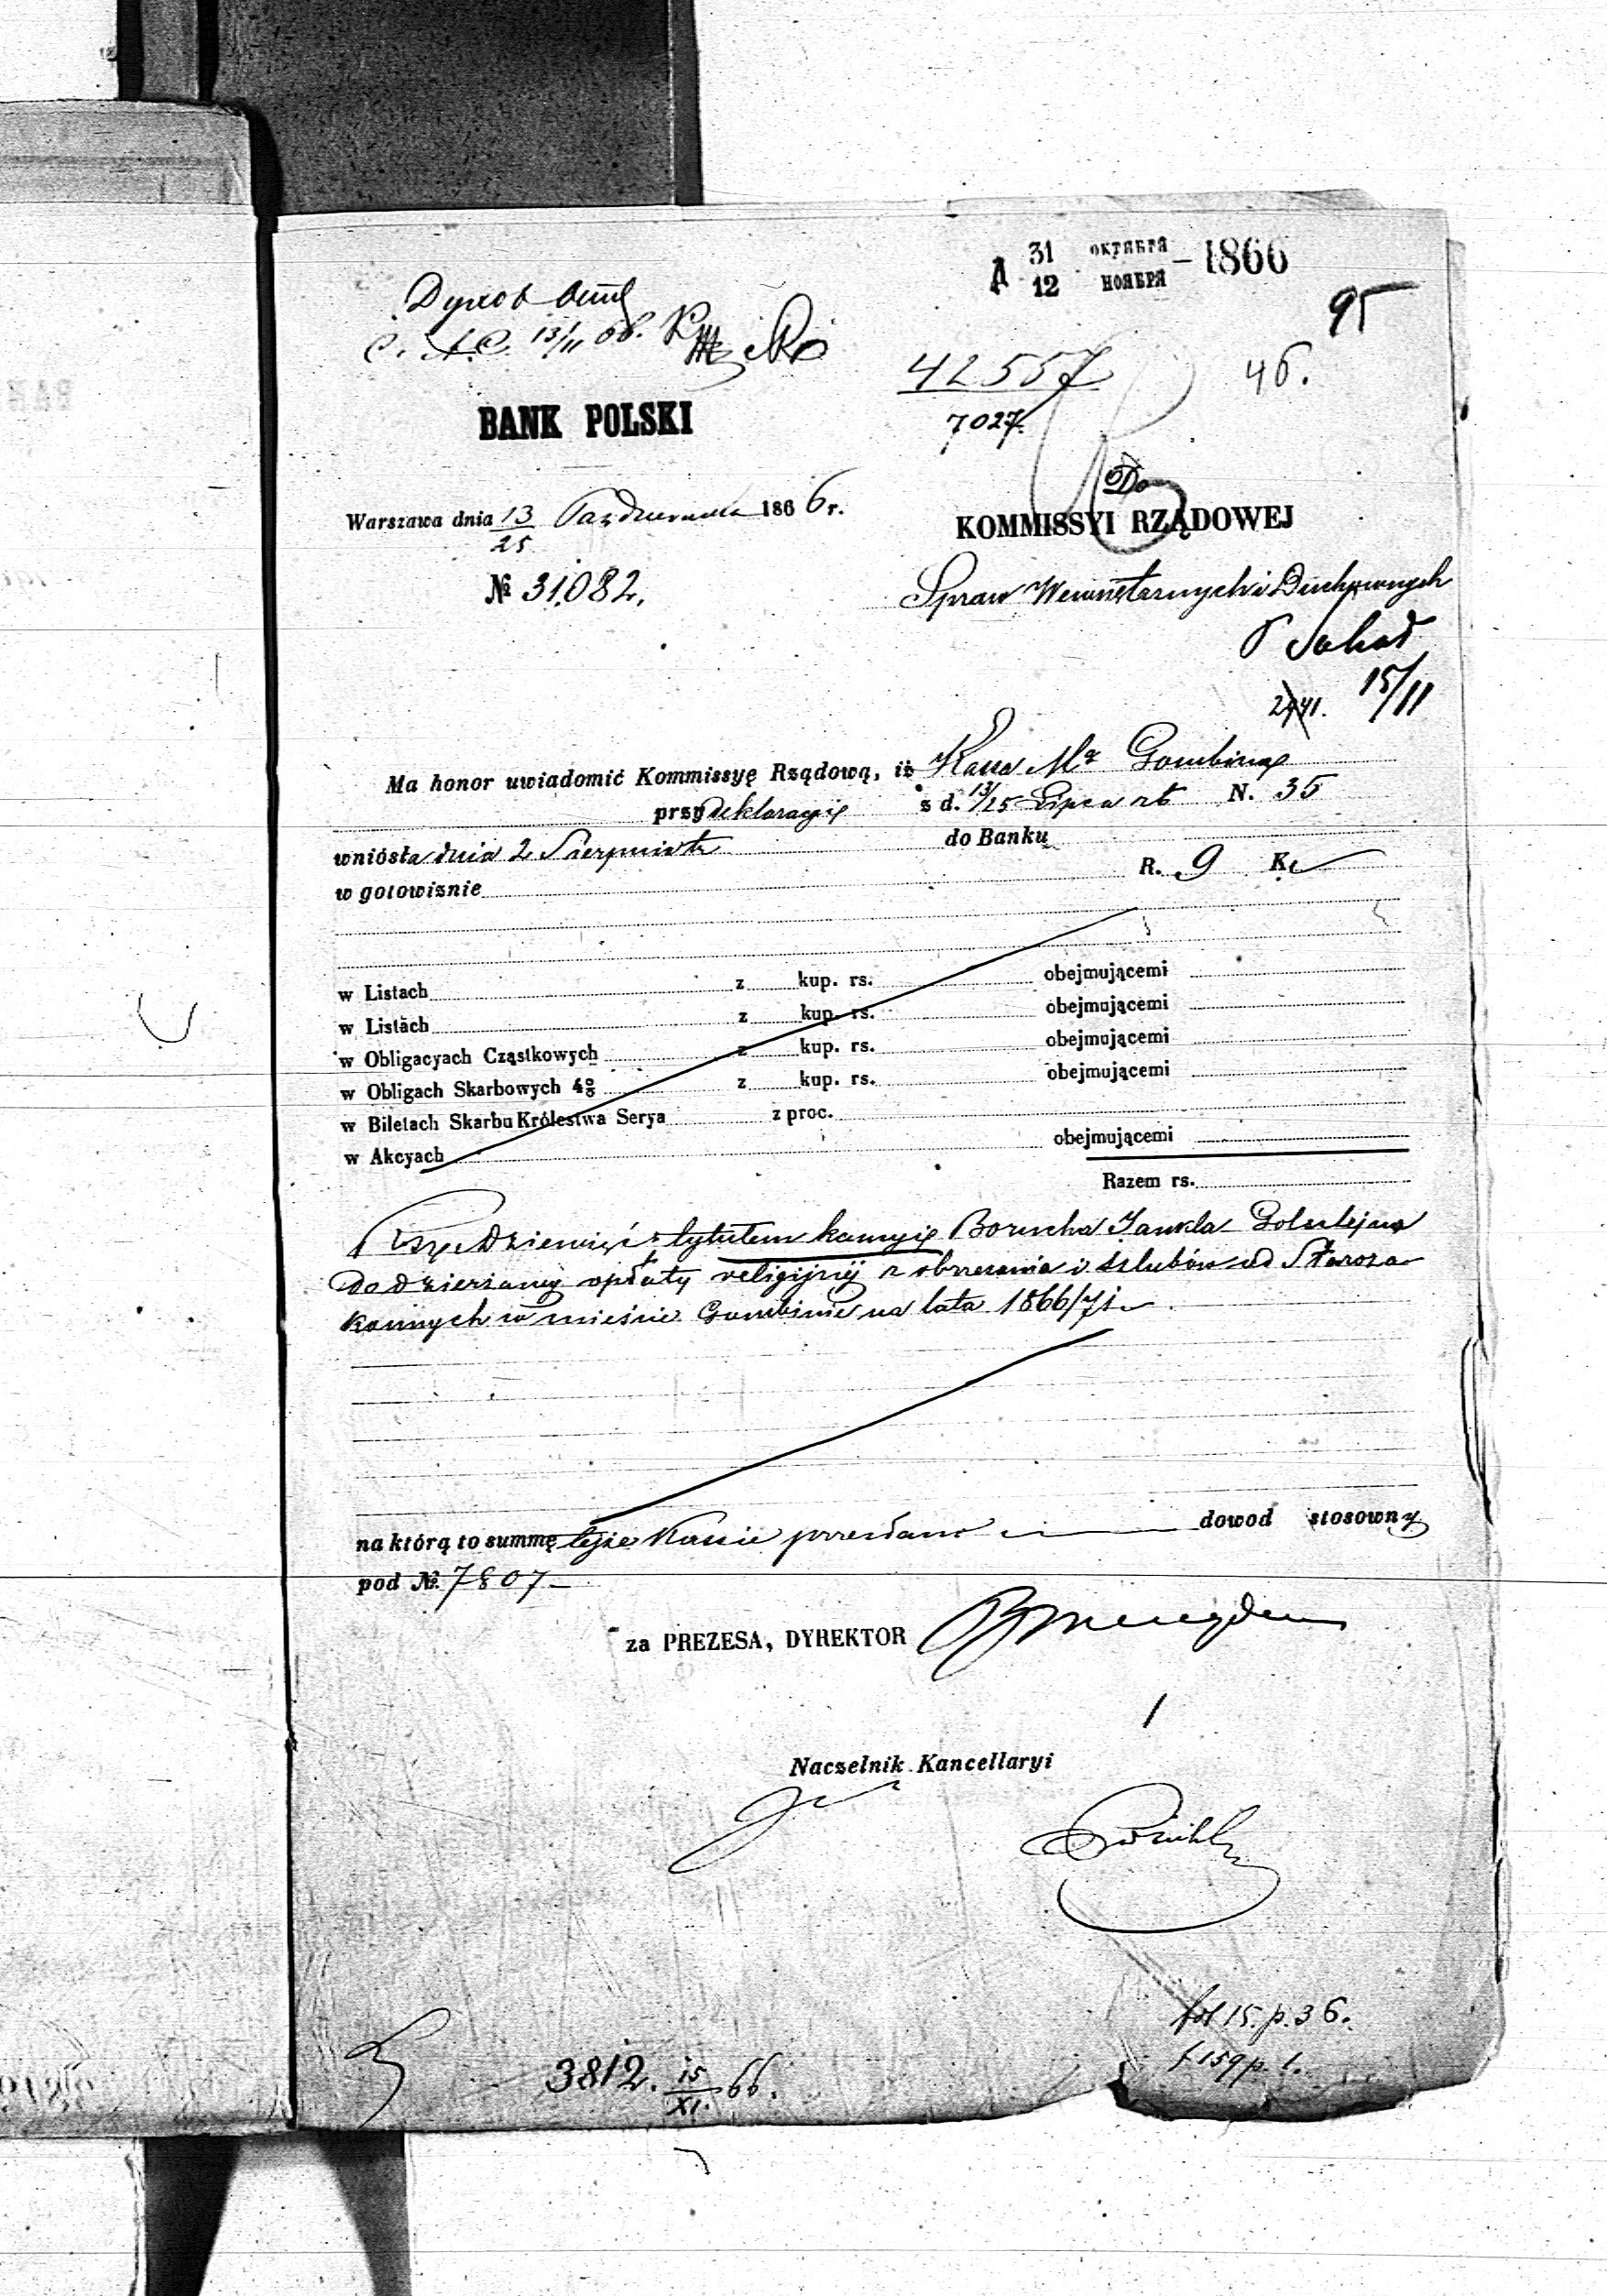 Д 31 ОКТЯБРЯ
12 НОЯБРЯ – 1866
95
Духов
13/11 66.
42557
7027.
46.
BANK POLSKI
Do
KOMMISSYI RZĄDOWEJ
Warszawa dnia 13/25 Października 1866 r.
№ 31,082.
Spraw Wewnętrznych i Duchownych
15/11
2441.
Ma honor uwiadomić Kommissyę Rządową, iż Kassa Mta Gombina
przy deklaracyi z d. 13/25 Lipca rb N. 35
wniosła dnia 2 Sierpnia tr do Banku
w gotowiznie R. 9 K.
w Listach z kup. rs. obejmującemi
w Listach z kup. rs. obejmującemi
w Obligacyach Cząstkowych z kup. rs. obejmującemi
w Obligach Skarbowych 4% z kup. rs. obejmującemi
w Biletach Skarbu Królestwa Serya z proc.
w Akcyach obejmującemi
Razem rs.
Rsr. Dziewięć tytułem kaucyi Borucha Jankla
do dzierżawy opłaty religijnej z obrzezania i szlubów od Staroza-
konnych w mieście Gombinie na lata 1866/71
na którą to summę tejże Kassie przesłano dowod stosowny
pod №. 7807
za PREZESA, DYREKTOR
Naczelnik Kancellaryi
fol 15. p. 36.
f 159 p. 1.
3812. 15/XI. 66.